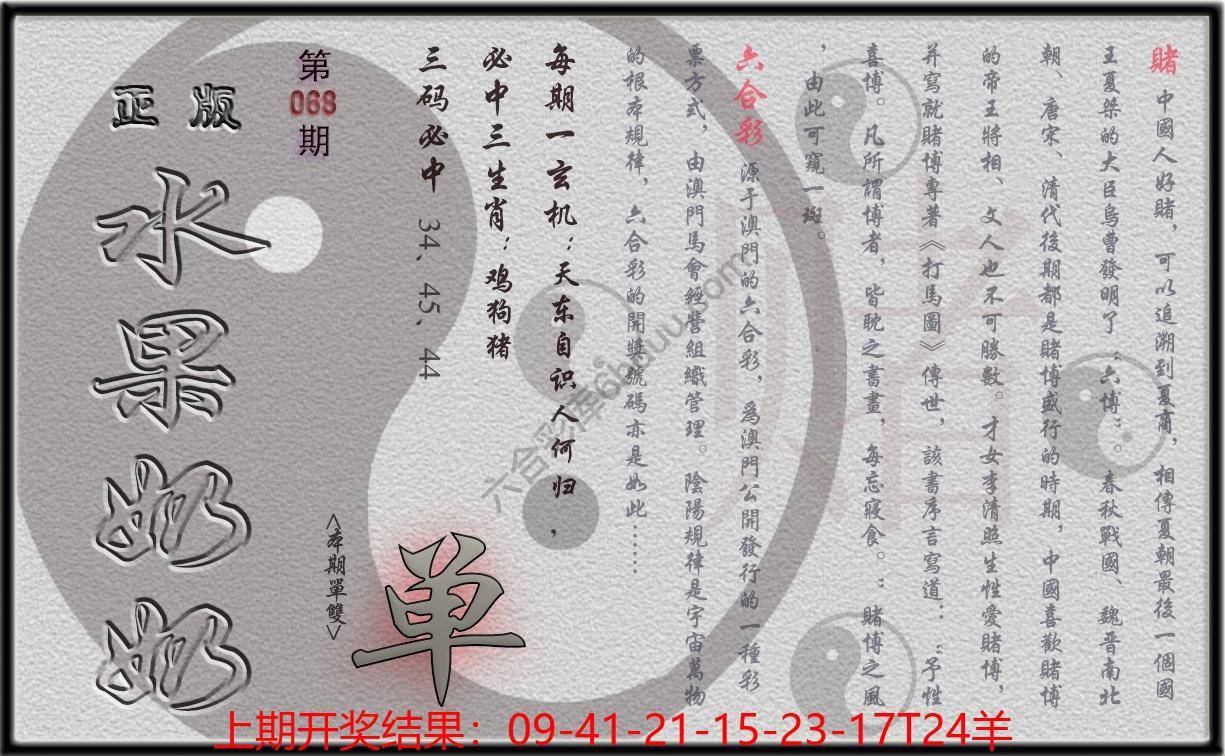 賭 中國人好賭，可以追溯到夏商，相傳夏朝最後一個國
王夏桀的大臣烏曹發明了“六博”。春秋戰國、魏晋南北
朝、唐宋、清代後期都是賭博盛行的時期，中國喜歡賭博
的帝王將相、文人也不可勝數。才女李清照生性愛賭博，
并寫就賭博專著《打馬圖》傳世，該書序言寫道：“予性
喜博。凡所謂博者，皆耽之晝書，每忘寢食。”賭博之風
，由此可窺一斑。
六合彩 源于澳門的六合彩，爲澳門公開發行的一種彩
票方式，由澳門馬會經營組織管理。陰陽規律是宇宙萬物
的根本規律，六合彩的開獎號碼亦是如此……
每期一玄机：天东自识人何归，
必中三生肖：鸡狗猪
三码必中 34、45、44
第
068
期
正版
水果奶奶
<本期單雙>
单
賭
六合彩库66buuu.com
上期开奖结果：09-41-21-15-23-17T24羊